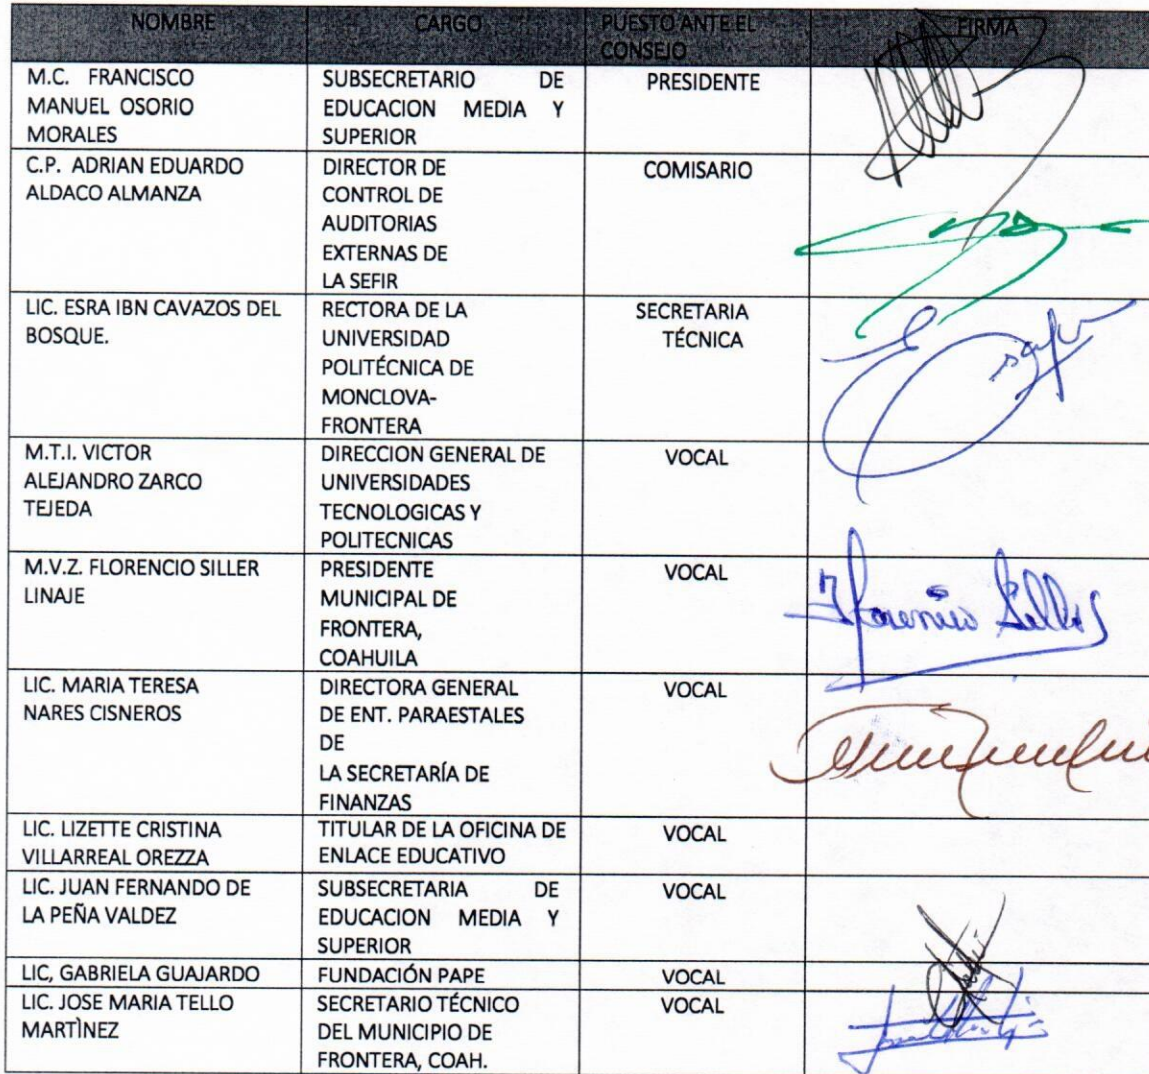 NOMBRE CARGO PUESTO ANTE EL CONSEJO FIRMA
M.C. FRANCISCO
MANUEL OSORIO
MORALES
SUBSECRETARIO DE
EDUCACION MEDIA Y
SUPERIOR
PRESIDENTE
C.P. ADRIAN EDUARDO
ALDACO ALMANZA
DIRECTOR DE
CONTROL DE
AUDITORIAS
EXTERNAS DE
LA SEFIR
COMISARIO
LIC. ESRA IBN CAVAZOS DEL
BOSQUE.
RECTORA DE LA
UNIVERSIDAD
POLITÉCNICA DE
MONCLOVA-
FRONTERA
SECRETARIA
TÉCNICA
M.T.I. VICTOR
ALEJANDRO ZARCO
TEJEDA
DIRECCION GENERAL DE
UNIVERSIDADES
TECNOLOGICAS Y
POLITECNICAS
VOCAL
M.V.Z. FLORENCIO SILLER
LINAJE
PRESIDENTE
MUNICIPAL DE
FRONTERA,
COAHUILA
VOCAL
LIC. MARIA TERESA
NARES CISNEROS
DIRECTORA GENERAL
DE ENT. PARAESTALES
DE
LA SECRETARÍA DE
FINANZAS
VOCAL
LIC. LIZETTE CRISTINA
VILLARREAL OREZZA
TITULAR DE LA OFICINA DE
ENLACE EDUCATIVO
VOCAL
LIC. JUAN FERNANDO DE
LA PEÑA VALDEZ
SUBSECRETARIA DE
EDUCACION MEDIA Y
SUPERIOR
VOCAL
LIC, GABRIELA GUAJARDO
FUNDACIÓN PAPE
VOCAL
LIC. JOSE MARIA TELLO
MARTÌNEZ
SECRETARIO TÉCNICO
DEL MUNICIPIO DE
FRONTERA, COAH.
VOCAL